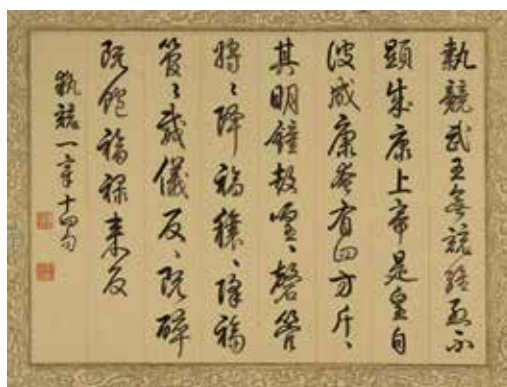 執競武王無競維烈不
顯成康上帝是皇自
彼成康奄有四方斤〻
其明鐘鼓喤〻磬管
將〻降福穰〻降福
簡〻威儀反〻既醉
既飽福祿來反
執競一章十四句